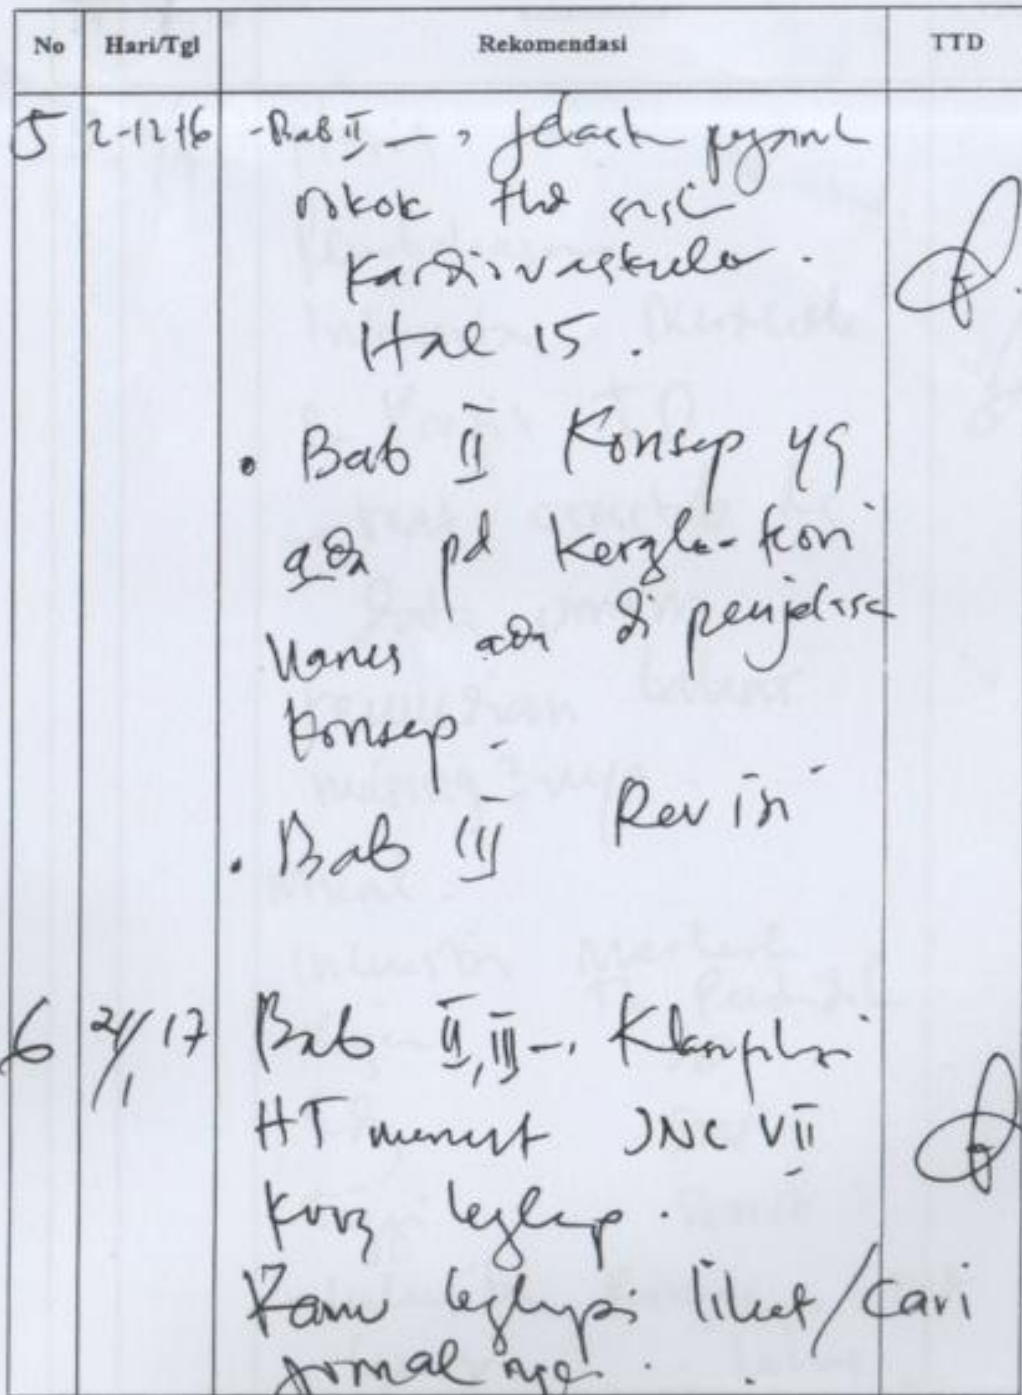 No Hari/Tgl Rekomendasi TTD
5 2-12 16 - Bab II → Jelask pengaruh
rokok thd
kardiovaskuler.
Hal 15.
• Bab II Konsep yg
ada pd kerangka teori
harus ada di penjelasa
konsep.
• Bab III Revisi
6 /1 17 Bab II, III → Klasifikasi
HT menurut JNC VII
kurang lengkap.
Kamu lengkapi lihat/cari
jornal nya.